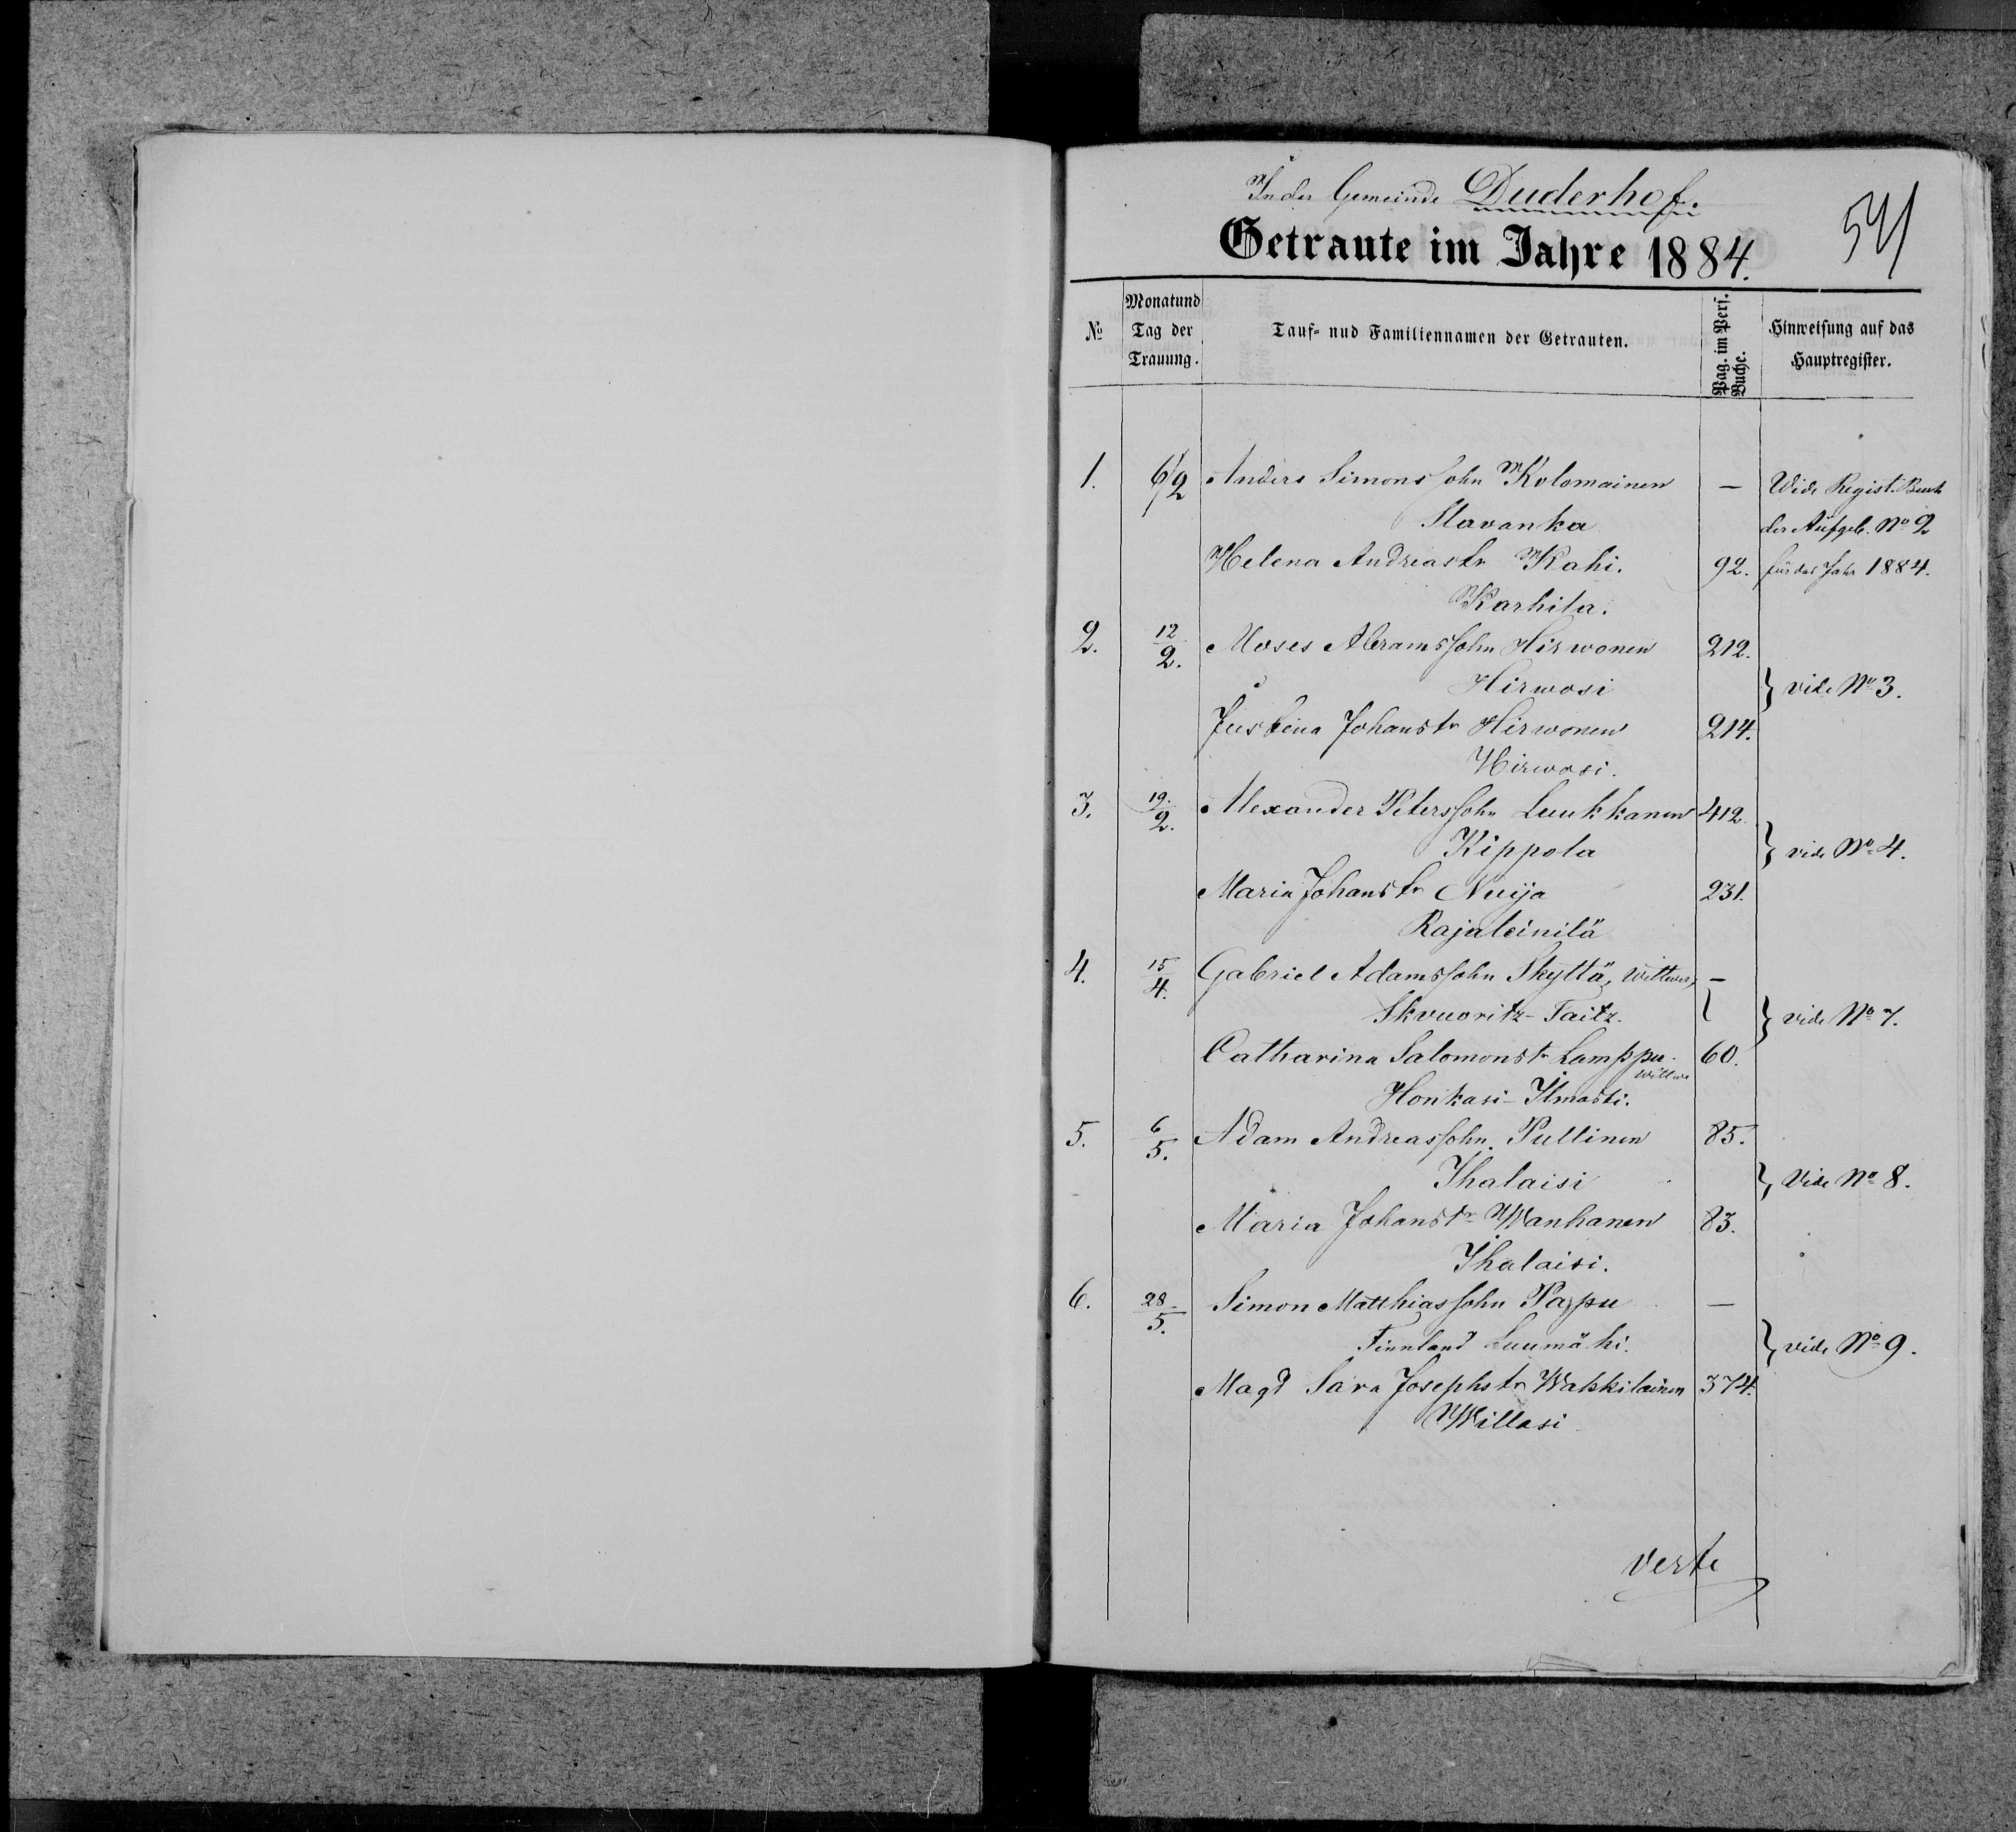 In der Gemeinde Duderhof.
541
Getraute im Jahre 1884.
№ Monat und Tag der Trauung. Tauf- nud Familiennamen der Getrauten. Pag. im Pers. Buche. Hinweisung auf das Hauptregister.
1. 6/2 Anders Simonssohn Kolomainen — Wide Regist. Buch
Slavanka der Aufgeb. No 2
Helena Andreastr Kahi. 92. für das Jahr 1884.
Karhila.
2. 12/2. Moses Abramssohn Hirwonen 212.
Hirwosi } vide No 3.
Justina Johanstr Hirwonen 214.
Hirwosi.
3. 19./2. Alexander Peterssohn Luukkanen 412.
Kippola } vide No 4.
Maria Johanstr Nuija 231.
Rajaleinilä
4. 15/4. Gabriel Adamssohn Skyttä, Wittwer, —
Skvuoritz-Taitz. } vide No 7.
Catharina Salomonstr Lamppu. 60.
Wittwe
Honkasi-Ilmasti.
5. 6/5. Adam Andreassohn Pullinen 85.
Ihalaisi } Vide No 8.
Maria Johanstr Wanhanen 83.
Ihalaisi.
6. 28/5. Simon Matthiassohn Pappu —
Finnland Luumäki. } vide No 9.
Magd Sara Josephstr Wakkilainen 374.
Willasi
verte